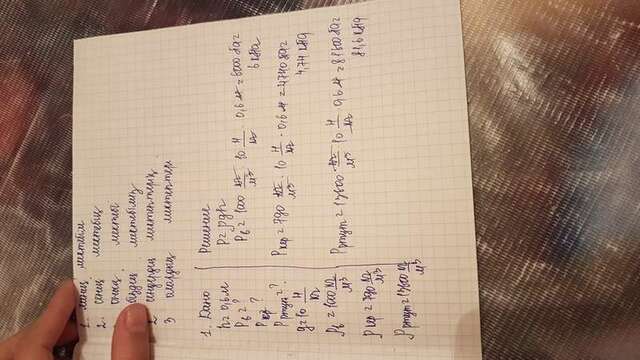 1. менің мектебім
2. сенің мектебің
оның мектебі
біздің мектебіміз
2 сендердің мектептерің
3 олардың мектептері
1. Дано
h = 0,6 м
Pв = ?
Pкер ?
Pртут = ?
g = 10 Н/кг
ρв = 1000 кг/м³
ρкер = 790 кг/м³
ρртут = 13600 кг/м³
Решение
P = ρgh
Pв = 1000 кг/м³ · 10 Н/кг · 0,6 м = 6000 Па =
6 кПа
Pкер = 790 кг/м³ · 10 Н/кг · 0,6 м = 4740 Па =
4,74 кПа
Pртут = 13600 кг/м³ · 10 Н/кг · 0,6 м = 81600 Па =
81,6 кПа